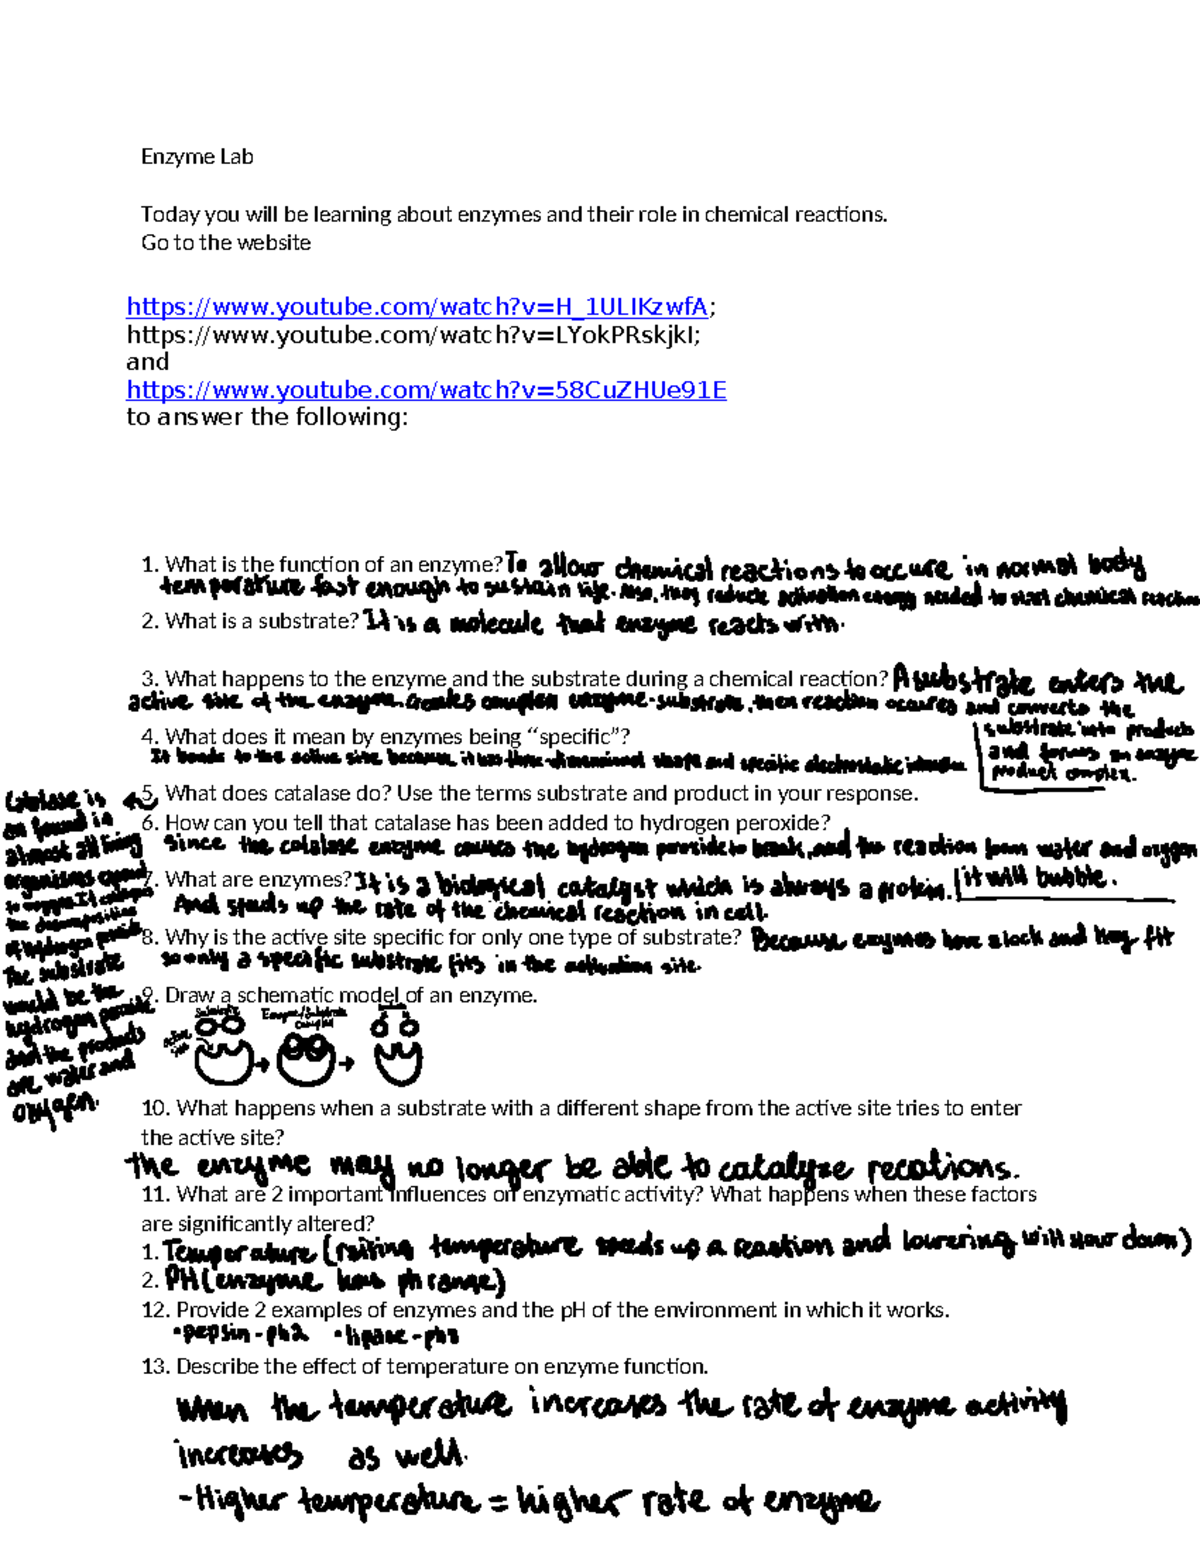 Enzyme Lab
Today you will be learning about enzymes and their role in chemical reactions.
Go to the website
https://www.youtube.com/watch?v=H_1ULIKzwfA;
https://www.youtube.com/watch?v=LYokPRskjkI;
and
https://www.youtube.com/watch?v=58CuZHUe91E
to answer the following:
1. What is the function of an enzyme? To allow chemical reactions to occure in normal body
temperature fast enough to sustain life. Also, they reduce activation energy needed to start chemical reaction
2. What is a substrate? It is a molecule that enzyme reacts with.
3. What happens to the enzyme and the substrate during a chemical reaction? A substrate enters the
active site of the enzyme. Creates complex enzyme-substrate, then reaction occures and converts the
substrate into products
and forms an enzyme
product complex.
4. What does it mean by enzymes being “specific”?
It bonds to the active site because it has three-dimensional shape and specific electrostatic
5. What does catalase do? Use the terms substrate and product in your response.
Catalase is
an found in
almost all living
organisms exposed
to oxygen. It catalyzes
the decomposition
of hydrogen peroxide
The substrate
would be the
hydrogen peroxide
and the products
are water and
oxygen.
6. How can you tell that catalase has been added to hydrogen peroxide?
Since the catalase enzyme causes the hydrogen peroxide to break, and the reaction form water and oxygen
it will bubble.
7. What are enzymes? It is a biological catalyst which is always a protein.
And speeds up the rate of the chemical reaction in cell.
8. Why is the active site specific for only one type of substrate? Because enzymes have a lock and key fit
so only a specific substrate fits in the activation site.
9. Draw a schematic model of an enzyme.
Substrate Enzyme/Substrate
Complex
Active
site
10. What happens when a substrate with a different shape from the active site tries to enter
the active site?
the enzyme may no longer be able to catalyze recations.
11. What are 2 important influences on enzymatic activity? What happens when these factors
are significantly altered?
1. Temperature (raising temperature speeds up a reaction and lowering will slow down)
2. PH (enzyme has ph range)
12. Provide 2 examples of enzymes and the pH of the environment in which it works.
•pepsin-ph2 •lipase-ph8
13. Describe the effect of temperature on enzyme function.
When the temperature increases the rate of enzyme activity
increases as well.
-Higher temperature = higher rate of enzyme